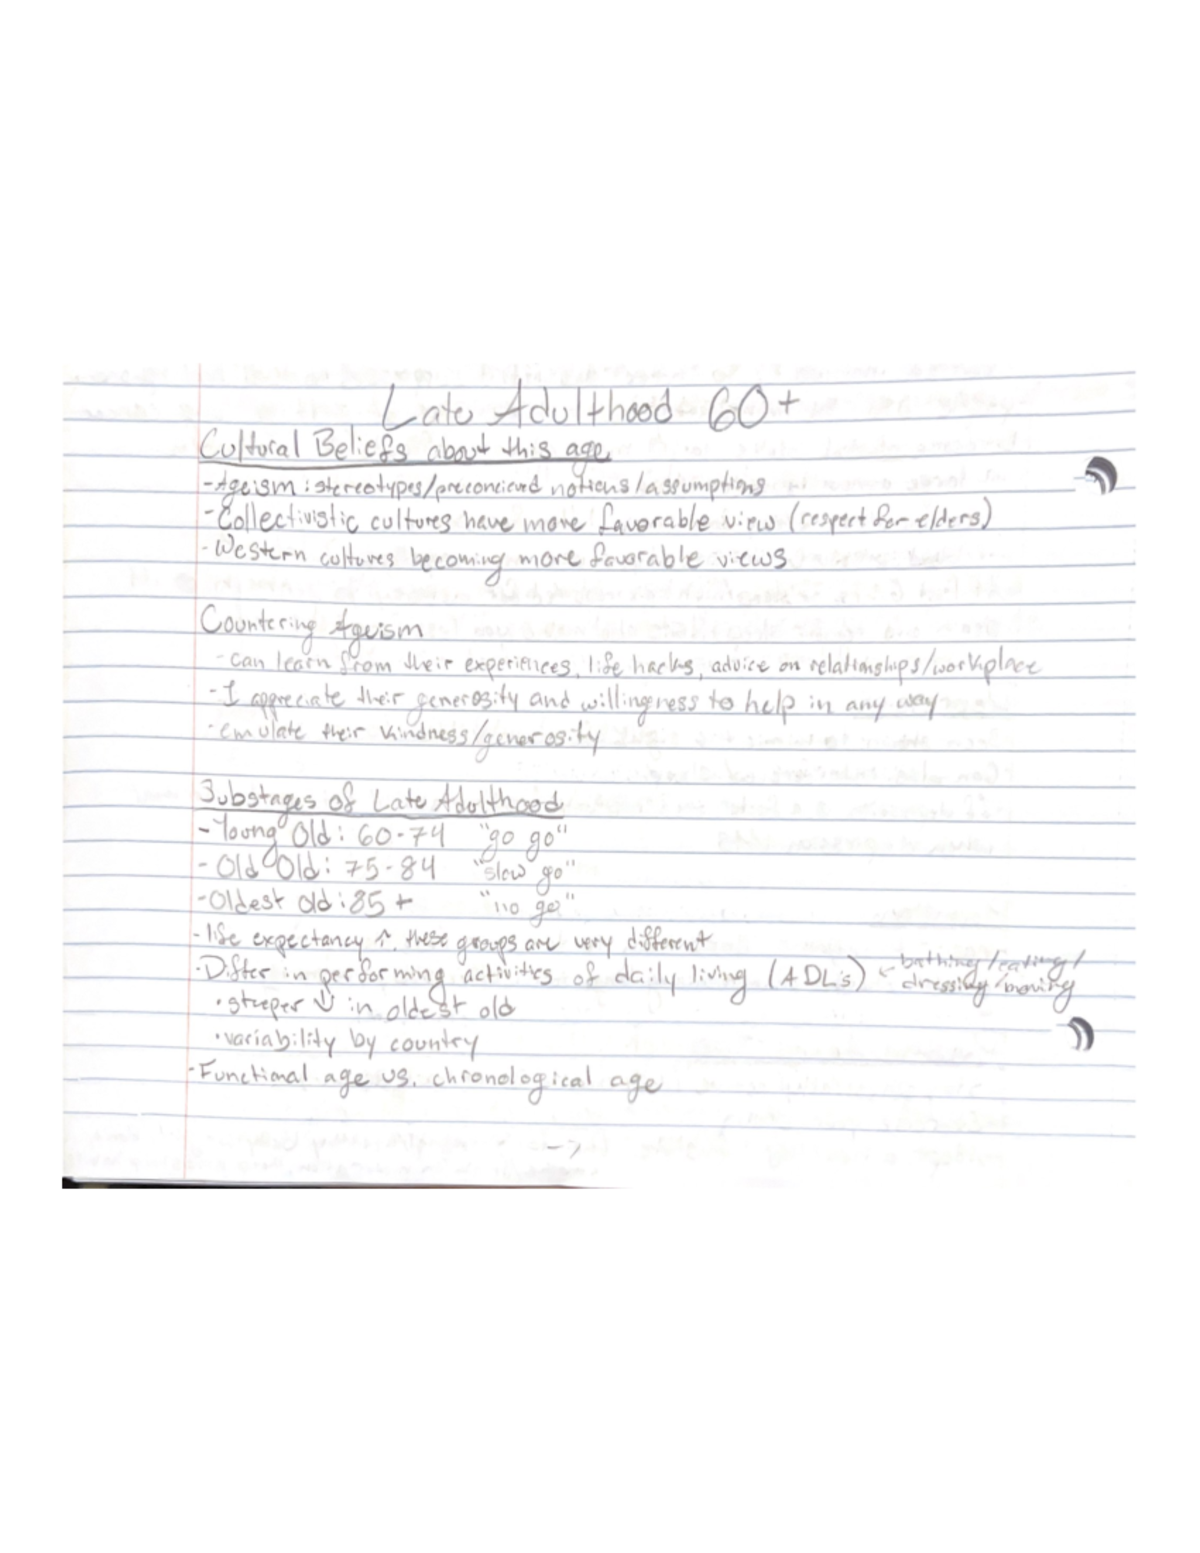 Late Adulthood 60+
Cultural Beliefs about this age
-Ageism: stereotypes/preconcieved notions/assumptions
-Collectivistic cultures have more favorable view (respect for elders)
-Western cultures becoming more favorable views
Countering Ageism
-can learn from their experiences, life hacks, advice on relationships/workplace
-I appreciate their generosity and willingness to help in any way
-emulate their kindness/generosity
Substages of Late Adulthood
-Young Old: 60-74 "go go"
-Old Old: 75-84 "slow go"
-Oldest old: 85+ "no go"
-life expectancy ↑. these groups are very different
-Differ in performing activities of daily living (ADL's) ← bathing/eating/
dressing/moving
•steeper ↓ in oldest old
•variability by country
-Functional age vs. chronological age
->